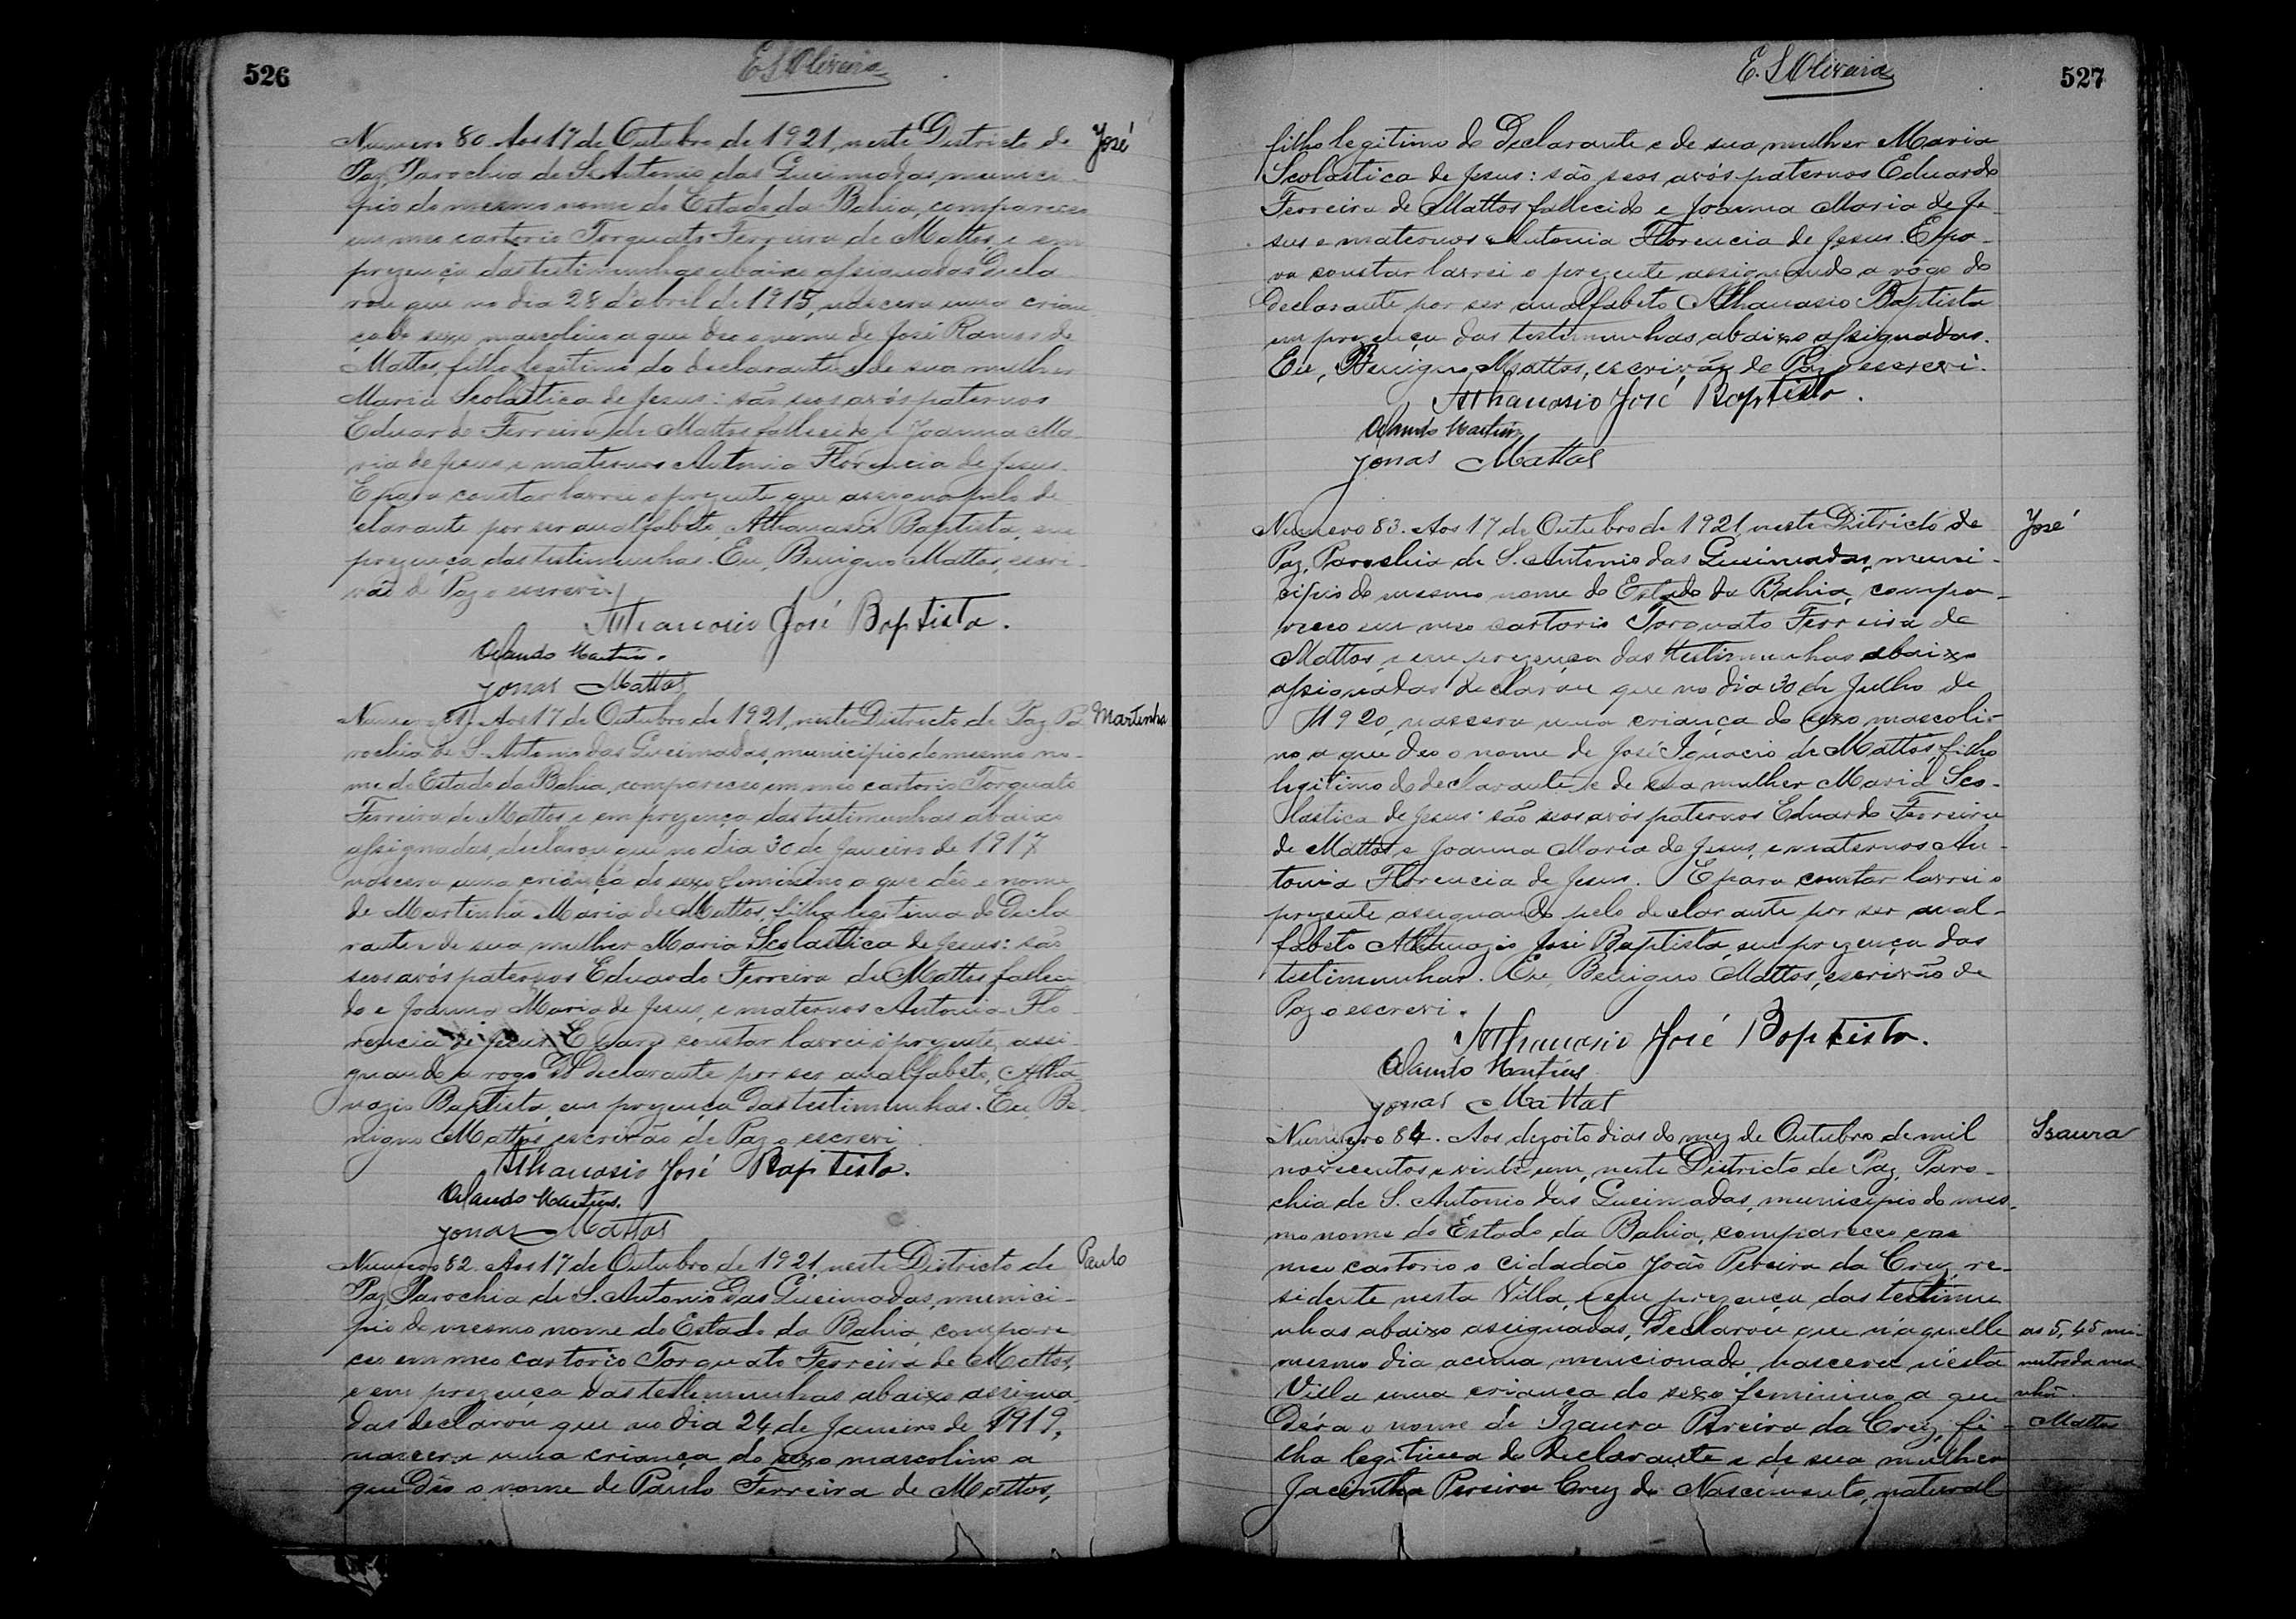 526
E S Oliveira
José
Numero 80. Aos 17 de Outubro de 1921, neste Districto de
Paz, Parochia de S. Antonio das Queimadas, munici-
pio do mesmo nome do Estado da Bahia, compareceo
em meo cartorio Torquato Ferreira de Mattos, e em
prezença das testimunhas abaixo assignadas decla-
rou que no dia 28 d'abril de 1915, nascera uma crian-
ça do sexo mascolino a que deo o nome de José Ramos de
Mattos, filho legitimo do declarante e de sua mulher
Maria Scolastica de Jesus: são seos avós paternos
Eduardo Ferreira de Mattos fallecido e Joanna Ma-
ria de Jesus e maternos Antonia Florencia de Jesus.
E para constar lavrei o prezente que assigna pelo de-
clarante por ser analfabeto, Athanasio Baptista, em
prezença das testimunhas. Eu, Benigno Mattos, escri-
vão de Paz o escrevi.
Athanasio José Baptista.
Olando Martins.
Jonas Mattos
Martinha
Numero 81. Aos 17 de Outubro de 1921, neste Districto de Paz Pa-
rochia de S. Antonio das Queimadas, municipio do mesmo no-
me do Estado da Bahia, compareceo em meo cartorio Torquato
Ferreira de Mattos e em prezença das testimunhas abaixo
assignadas, declarou que no dia 30 de Janeiro de 1917
nascera uma criança do sexo feminino a que deo o nome
de Martinha Maria de Mattos, filha legitima do Decla-
rante e de sua mulher Maria Scolastica de Jesus: são
seos avós paternos Eduardo Ferreira de Mattos falleci-
do e Joanna Maria de Jesus, e maternos Antonia Flo-
rencia de Jesus. E para constar lavrei o prezente, assi-
gnando a rogo do Declarante por ser analfabeto, Atha-
nazio Baptista, em prezença das testimunhas. Eu, Be-
nigno Mattos, escrivão de Paz o escrevi
Athanasio José Baptista.
Olando Martins.
Jonas Mattos
Paulo
Numero 82. Aos 17 de Outubro de 1921, neste Districto de
Paz, Parochia de S. Antonio das Queimadas, munici-
pio do mesmo nome do Estado da Bahia, compare-
ceo em meo cartorio Torquato Ferreira de Mattos,
e em prezença das testemunhas abaixo assigna-
das declarou que no dia 24 de Janeiro de 1919,
nascera uma criança do sexo mascolino a
que deo o nome de Paulo Ferreira de Mattos,
527
E. S Oliveira
filho legitimo do Declarante e de sua mulher Maria
Scolastica de Jesus: são seos avós paternos Eduardo
Ferreira de Mattos fallecido e Joanna Maria de Je-
sus e maternos Antonia Florencia de Jesus. E pa-
ra constar lavrei o prezente assignando a rogo do
Declarante por ser analfabeto Athanasio Baptista
em prezença das testimunhas abaixo assignadas.
Eu, Benigno Mattos, escrivão de Paz o escrevi.
Athanasio José Baptista.
Olando Martins
Jonas Mattos
José
Numero 83. Aos 17 de Outubro de 1921, neste Districto de
Paz, Parochia de S. Antonio das Queimadas, muni-
cipio do mesmo nome do Estado da Bahia, compa-
receo em meo cartorio Torquato Ferreira de
Mattos, e em prezença das testimunhas abaixo
assignadas declarou que no dia 30 de Julho de
1920, nascera uma criança do sexo mascoli-
no a que deo o nome de José Ignacio de Mattos, filho
legitimo do declarante e de sua mulher Maria Sco-
lastica de Jesus: são seos avós paternos Eduardo Ferreira
de Mattos e Joanna Maria de Jesus, e maternos An-
tonia Florencia de Jesus. E para constar lavrei o
prezente assignando pelo declarante por ser anal-
fabeto Athanazio José Baptista, em prezença das
testimunhas. Eu, Benigno Mattos, escrivão de
Paz o escrevi.
Athanasio José Baptista.
Olando Martins
Jonas Mattos
Isaura
Numero 84. Aos dezoito dias do mez de Outubro de mil
novecentos e vinte um, neste Districto de Paz, Paro-
chia de S. Antonio das Queimadas, municipio do mes-
mo nome do Estado da Bahia, compareceo em
meo cartorio o cidadão João Pereira da Cruz, re-
sidente nesta Villa, e em prezença das testimu-
nhas abaixo assignadas, Declarou que n'aquelle
mesmo dia acima mencionado, nascera nesta
Villa uma criança do sexo feminino a que
Déra o nome de Izaura Pereira da Cruz, fi-
lha legitima do Declarante e de sua mulher
Jacintha Pereira Cruz do Nascimento, natural
as 5,45 mi-
nutos da ma-
nhã.
Mattos